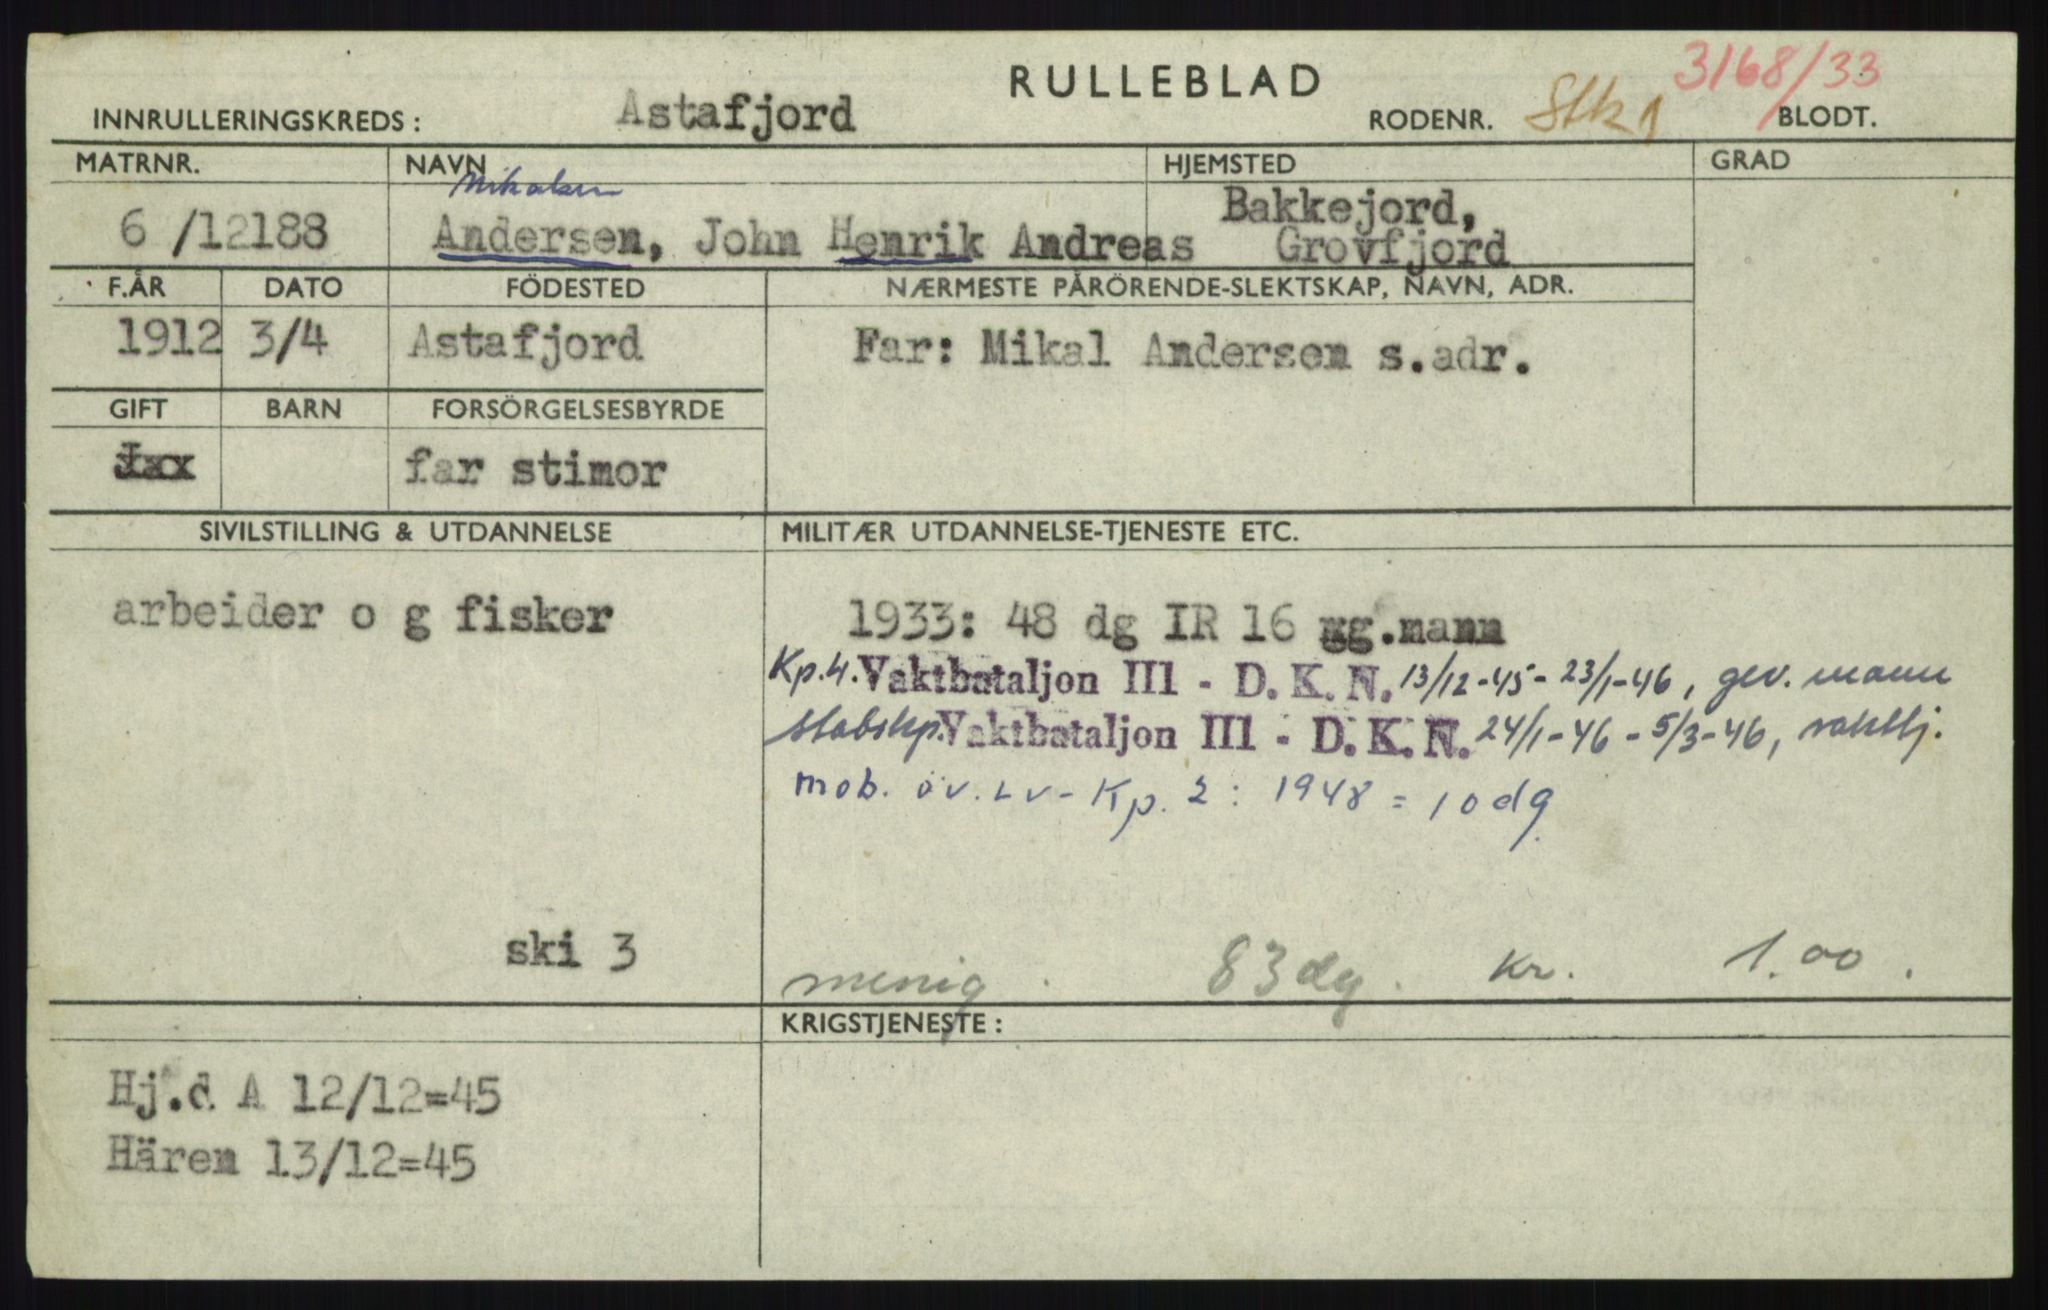 RULLEBLAD
3168/33
INNRULLERINGSKREDS: Astafjord RODENR. Stk 1 BLODT.
MATRNR. NAVN HJEMSTED GRAD
Mikalsen
6 /12188 Andersen, John Henrik Andreas Bakkejord,
Grovfjord
F.ÅR DATO FÖDESTED NÆRMESTE PÅRÖRENDE-SLEKTSKAP, NAVN, ADR.
1912 3/4 Astafjord Far: Mikal Andersen s.adr.
GIFT BARN FORSÖRGELSESBYRDE
far stimor
SIVILSTILLING & UTDANNELSE MILITÆR UTDANNELSE-TJENESTE ETC.
arbeider o g fisker 1933: 48 dg IR 16 mg.mann
Kp.4. Vaktbataljon III - D.K.N. 13/12-45 - 23/1-46, gev. mann
Stabskp. Vaktbataljon III - D.K.N. 24/1-46 - 5/3-46, vakttj.
mob. öv. Lv-Kp. 2: 1948 = 10 dg
ski 3
menig. 83 dg. Kr. 1.00.
KRIGSTJENESTE:
Hj.d A 12/12=45
Hären 13/12=45